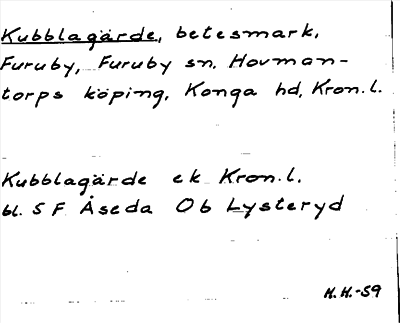 Kubblagärde, betesmark,
Furuby, Furuby sn, Hovman-
torps köping, Konga hd, Kron.l.
Kubblagärde ek Kron.l.
bl. 5 F Åseda Ob Lysteryd
H.H.-59